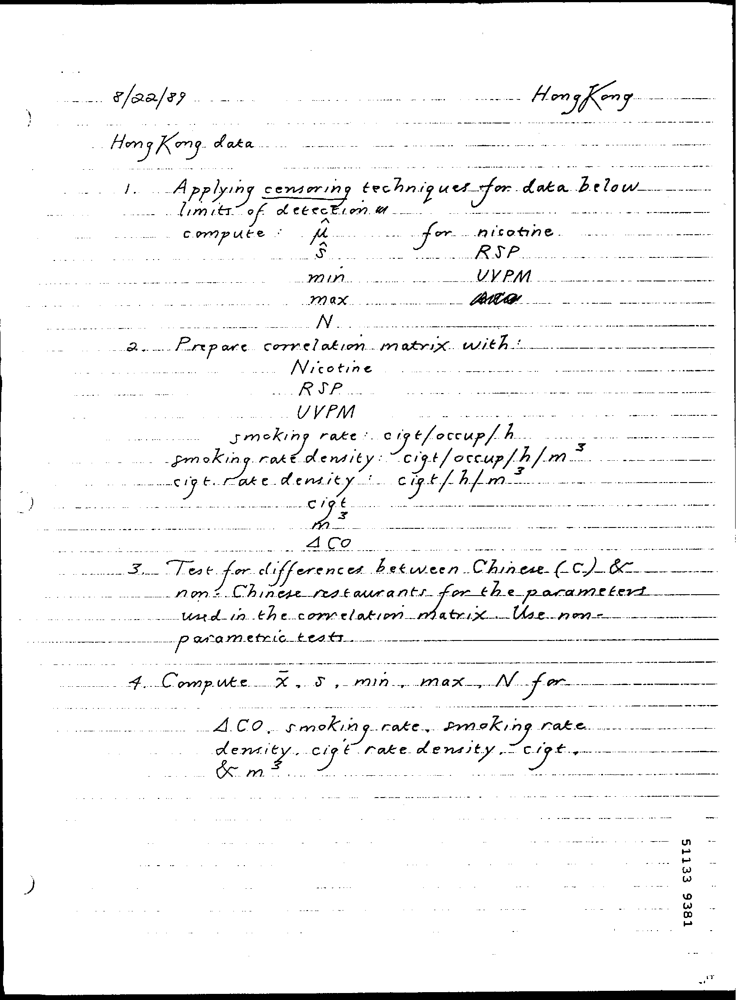 8/22/89 Hong Kong
Hong Kong data
1. Applying censoring techniques for data below
limits of detection
compute : μ̂ for nicotine
ŝ RSP
min UVPM
max
N
2. Prepare correlation matrix with :
Nicotine
RSP
UVPM
smoking rate : cigt/occup/h
smoking rate density : cigt/occup/h/m³
cigt. rate density : cigt/h/m³
cigt
m³
Δ CO
3. Test for differences between Chinese (C) &
non-Chinese restaurants for the parameters
used in the correlation matrix. Use non-
parametric tests.
4. Compute x̄, s, min, max, N for
Δ CO, smoking rate, smoking rate
density, cigt rate density, cigt,
& m³
51133 9381